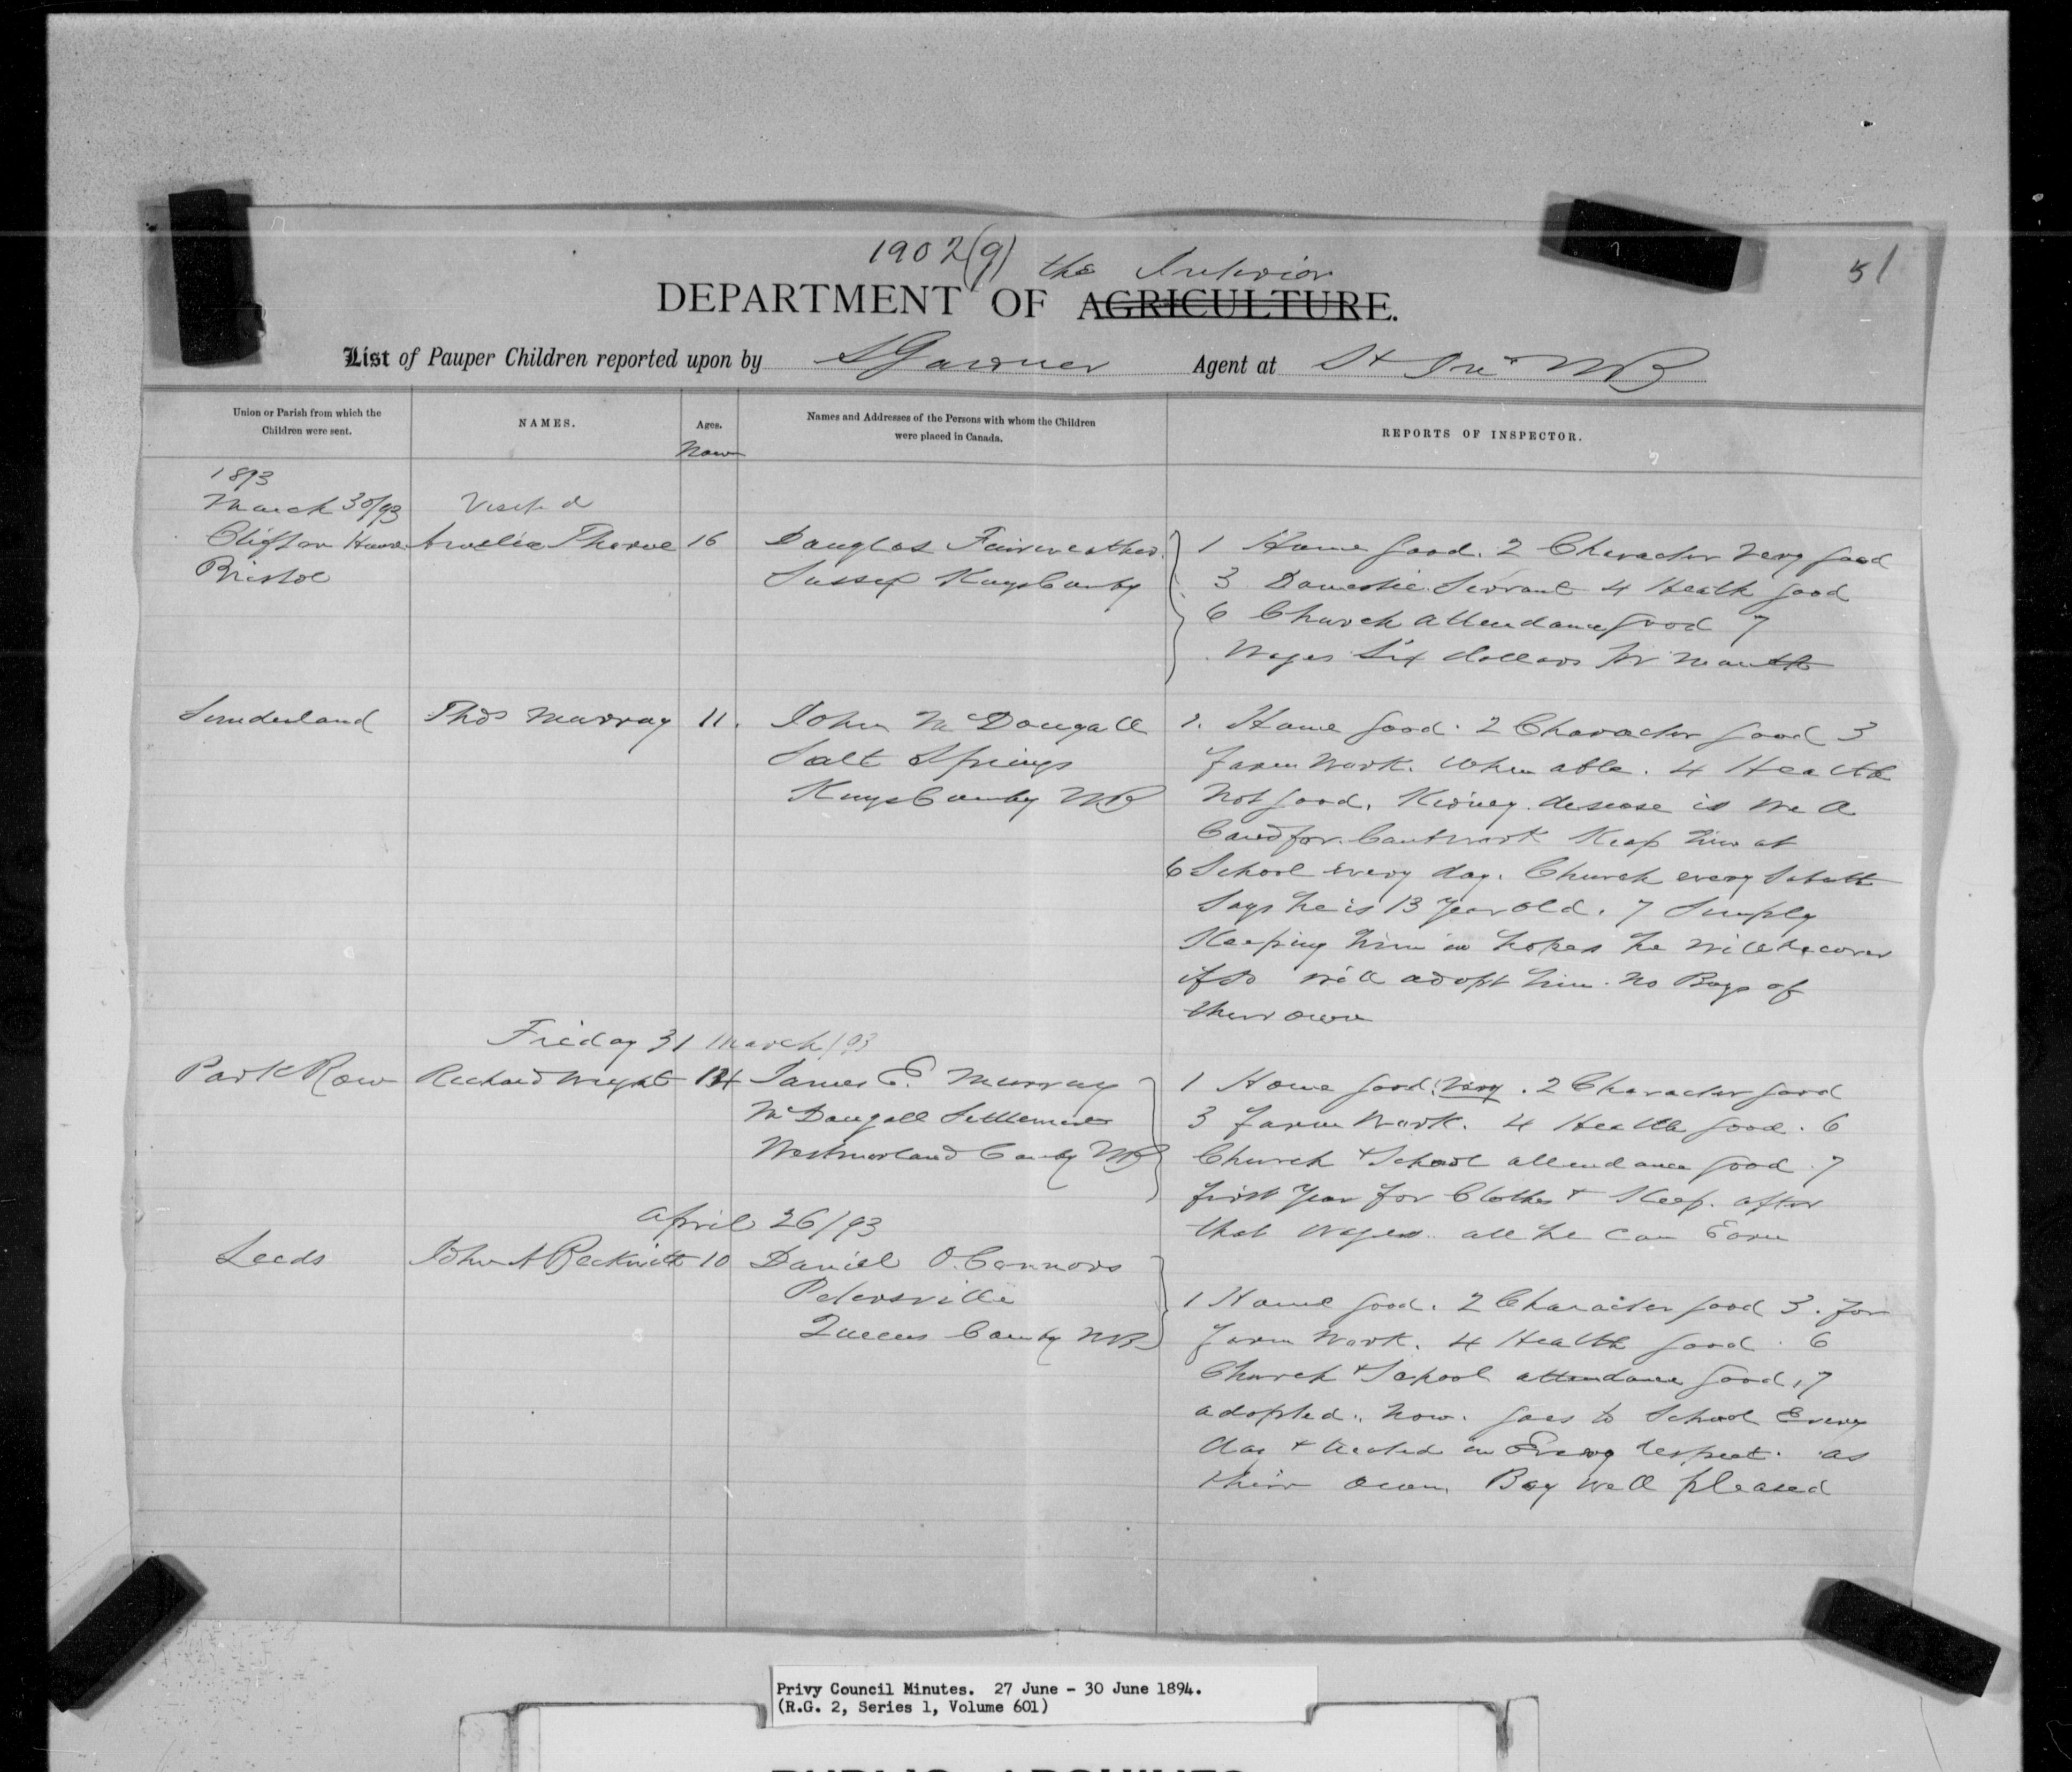 1902(g) the Interior
51
DEPARTMENT OF AGRICULTURE.
List of Pauper Children reported upon by S Gardner Agent at St Jno NB
Union or Parish from which the Children were sent.
NAMES.
Ages.
Now
Names and Addresses of the Persons with whom the Children were placed in Canada.
REPORTS OF INSPECTOR.
1893
March 30/93 Visited
Clifton House Amelia Thorne 16 Douglas Fairweather 1 Home good. 2 Character very good
Bristol Sussex Kings County 3 Domestic Servant 4 Health good
6 Church attendance good 7
Wages Six dollars pr month
Sunderland Thos Murray 11. John McDougall 1. Home good. 2 Character good 3
Salt Springs farm work. When able. 4 Health
Kings County NB Not good. Kidney disease is well
Cared for. Cant work Keep him at
6 School every day. Church every Sabath
Says he is 13 year old. 7 Simply
Keeping him in hopes he will recover
if so will adopt him. No Boys of
their own
Friday 31 March/93
Park Row Richard Wright 14 James E. Murray 1 Home good. Very. 2 Character good
McDougall Settlement 3 farm work. 4 Health good. 6
Westmorland County NB Church + School attendance good. 7
first year for Clothes + Keep. after
that wages all he can Earn
April 26/93
Leeds John A Beckwith 10 Daniel O.Connors
Petersville 1 Home good. 2 Character good 3. for
Queens County NB farm work. 4 Health good. 6
Church + School attendance good, 7
adopted. now. goes to School Every
day + treated in Every respect. as
their own. Boy well pleased
Privy Council Minutes. 27 June - 30 June 1894.
(R.G. 2, Series 1, Volume 601)
PUBLIC ARCHIVES